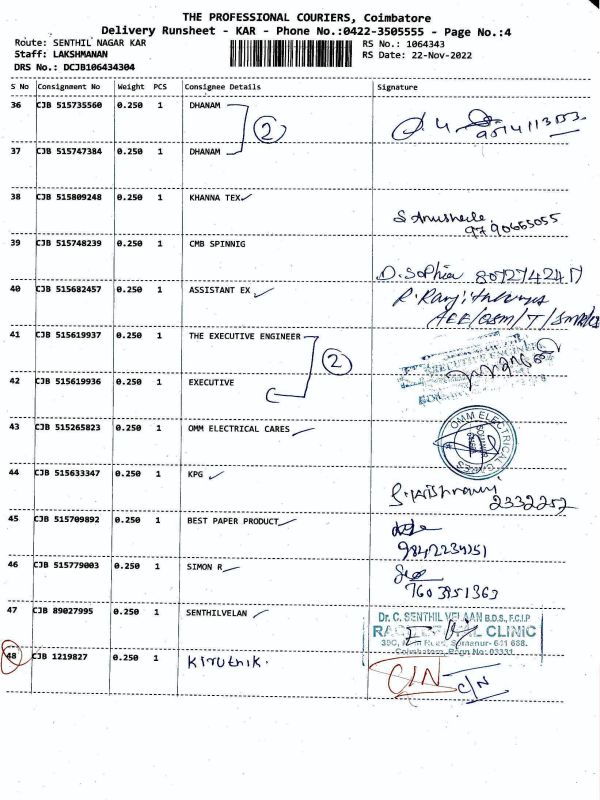 THE PROFESSIONAL COURIERS, Coimbatore
Delivery Runsheet - KAR - Phone No.:0422-3505555 - Page No.:4
Route: SENTHIL NAGAR KAR
RS No.: 1064343
Staff: LAKSHMANAN
RS Date: 22-Nov-2022
DRS No.: DCJB106434304
S No Consignment No Weight PCS Consignee Details Signature
36 CJB 515735560 0.250 1 DHANAM
2
37 CJB 515747384 0.250 1 DHANAM
38 CJB 515809248 0.250 1 KHANNA TEX
9790655055
39 CJB 515748239 0.250 1 CMB SPINNIG
D. Sophia
40 CJB 515682457 0.250 1 ASSISTANT EX
41 CJB 515619937 0.250 1 THE EXECUTIVE ENGINEER
2
42 CJB 515619936 0.250 1 EXECUTIVE
43 CJB 515265823 0.250 1 OMM ELECTRICAL CARES
OMM ELECTRICAL CARES
44 CJB 515633347 0.250 1 KPG
2332252
45 CJB 515709892 0.250 1 BEST PAPER PRODUCT
46 CJB 515779003 0.250 1 SIMON R
7603951363
47 CJB 89027995 0.250 1 SENTHILVELAN
Dr. C. SENTHIL VELAAN B.D.S., F.C.I.P
CLINIC
48 CJB 1219827 0.250 1 Kiruthik.
C/N
C/N